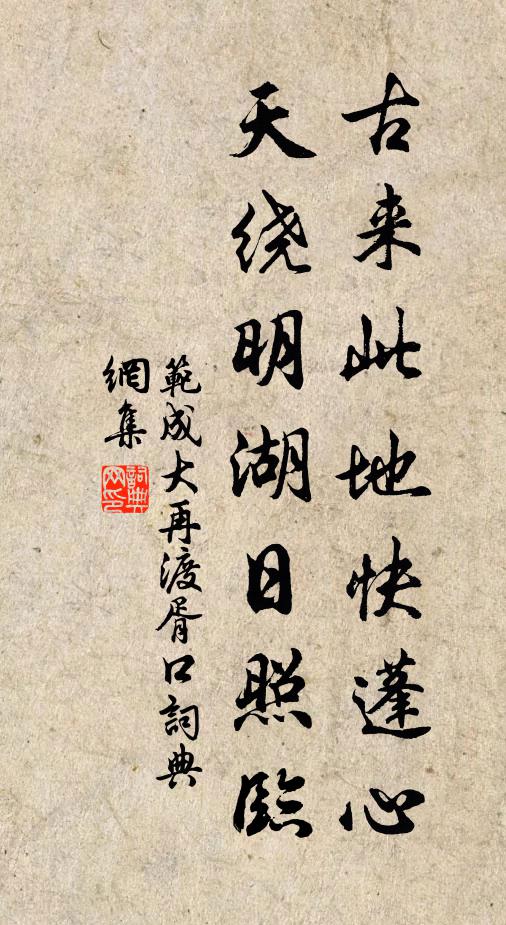 古来此地快蓬心
天绕明湖日照临
範成大再渡胥口詞典
網集
詞典網印